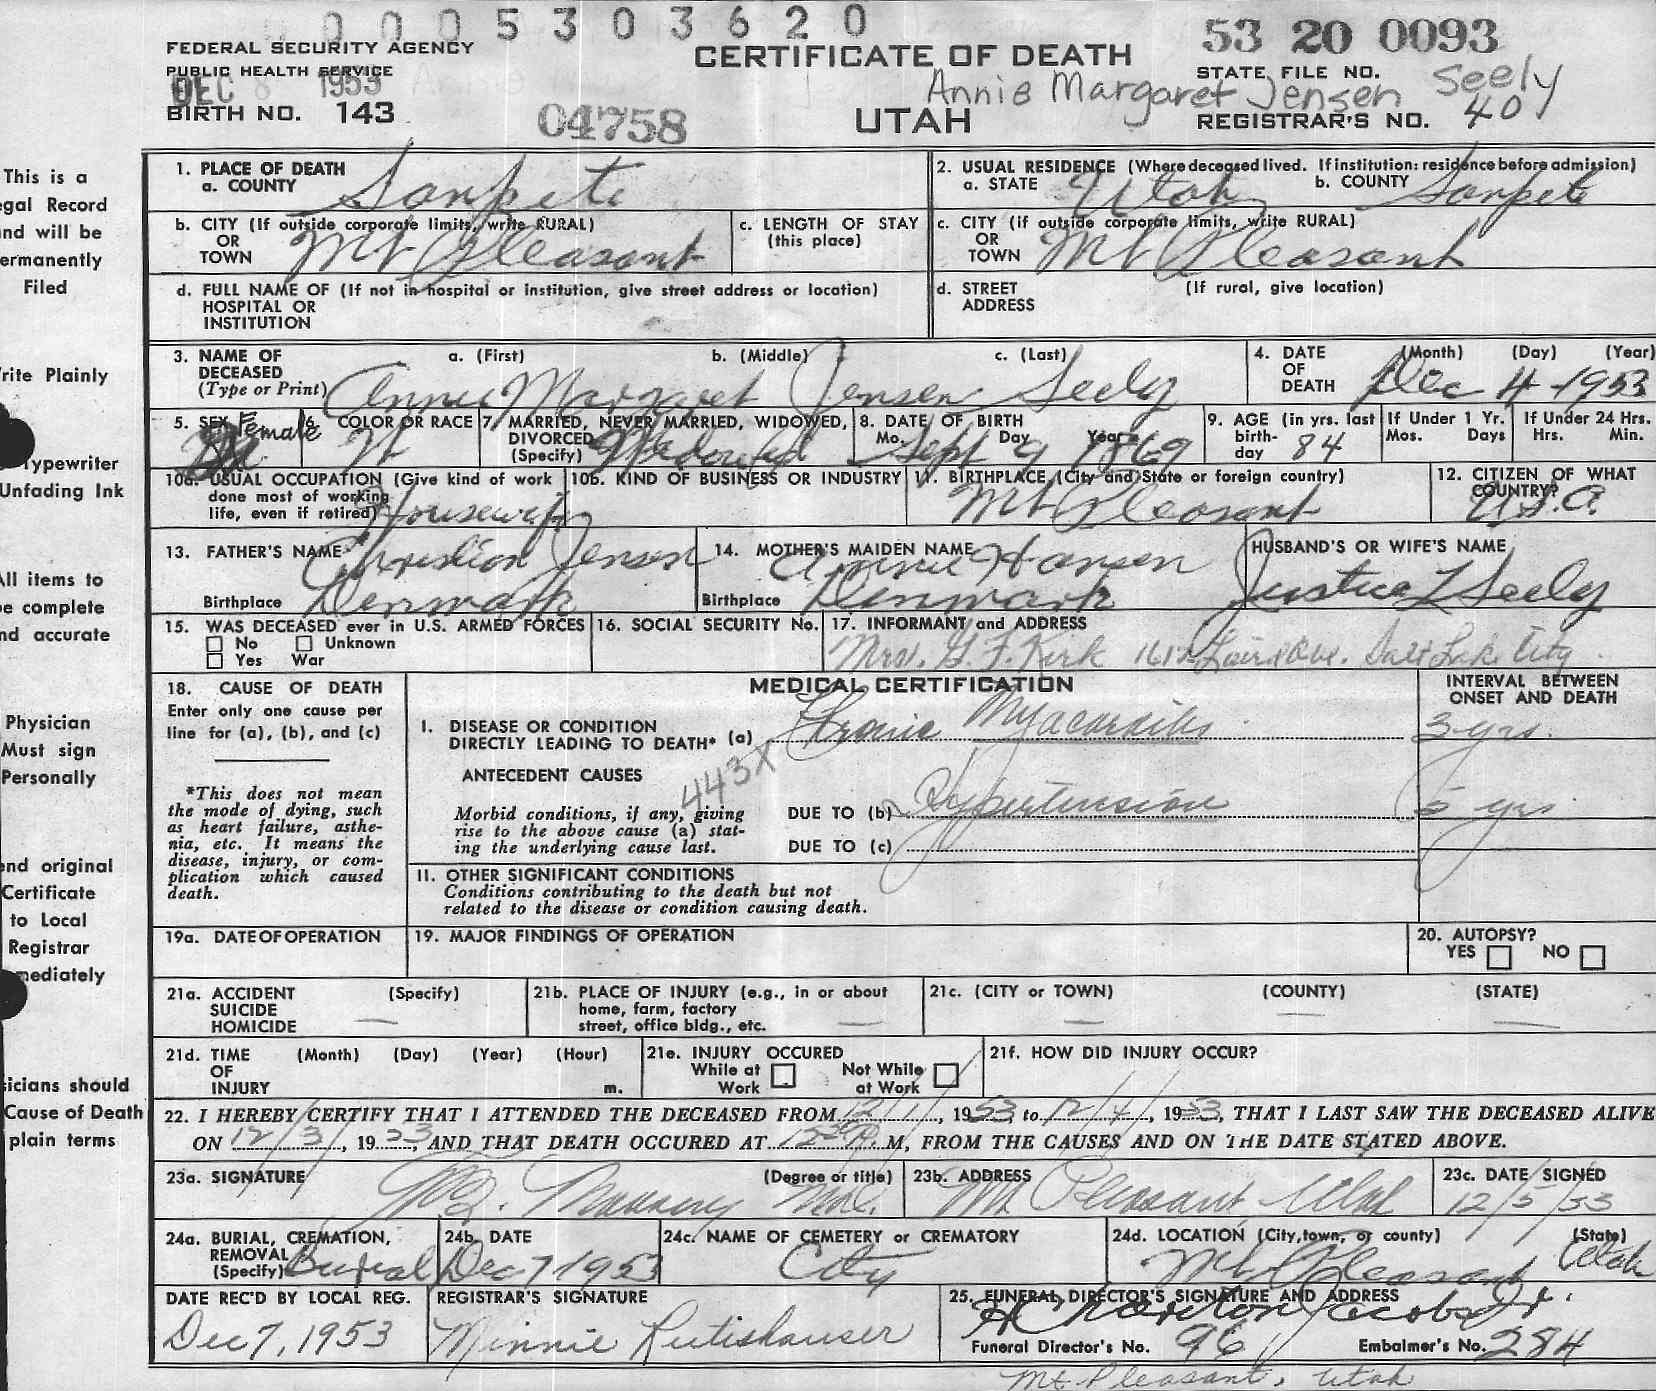 0 0 0 5 3 0 3 6 2 0
FEDERAL SECURITY AGENCY
PUBLIC HEALTH SERVICE
DEC 8 1953
BIRTH NO. 143
04758
CERTIFICATE OF DEATH
UTAH
53 20 0093
STATE FILE NO.
Annie Margaret Jensen Seely
REGISTRAR'S NO. 401
This is a
egal Record
nd will be
ermanently
Filed
rite Plainly
Typewriter
Unfading Ink
All items to
be complete
nd accurate
Physician
Must sign
Personally
end original
Certificate
to Local
Registrar
mediately
icians should
Cause of Death
plain terms
1. PLACE OF DEATH
a. COUNTY Sanpete
2. USUAL RESIDENCE (Where deceased lived. If institution: residence before admission)
a. STATE Utah b. COUNTY Sanpete
b. CITY (If outside corporate limits, write RURAL)
OR
TOWN Mt Pleasant
c. LENGTH OF STAY
(this place)
c. CITY (if outside corporate limits, write RURAL)
OR
TOWN Mt Pleasant
d. FULL NAME OF (If not in hospital or institution, give street address or location)
HOSPITAL OR
INSTITUTION
d. STREET (If rural, give location)
ADDRESS
3. NAME OF a. (First) b. (Middle) c. (Last)
DECEASED
(Type or Print) Annie Margaret Jensen Seely
4. DATE (Month) (Day) (Year)
OF
DEATH Dec 4 - 1953
5. SEX Female
6. COLOR OR RACE
W
7. MARRIED, NEVER MARRIED, WIDOWED,
DIVORCED
(Specify) Widowed
8. DATE OF BIRTH
Mo. Day Year
Sept 9 1869
9. AGE (in yrs. last
birth-
day 84
If Under 1 Yr.
Mos. Days
If Under 24 Hrs.
Hrs. Min.
10a. USUAL OCCUPATION (Give kind of work
done most of working
life, even if retired) Housewife
10b. KIND OF BUSINESS OR INDUSTRY
11. BIRTHPLACE (City and State or foreign country)
Mt Pleasant
12. CITIZEN OF WHAT
COUNTRY?
U.S.A.
13. FATHER'S NAME Christian Jensen
Birthplace Denmark
14. MOTHER'S MAIDEN NAME Annie Hansen
Birthplace Denmark
HUSBAND'S OR WIFE'S NAME
Justice L Seely
15. WAS DECEASED ever in U.S. ARMED FORCES
No Unknown
Yes War
16. SOCIAL SECURITY No.
17. INFORMANT and ADDRESS
Mrs. G. F. Kirk 1612 Laird Ave. Salt Lake City
18. CAUSE OF DEATH
Enter only one cause per
line for (a), (b), and (c)
*This does not mean
the mode of dying, such
as heart failure, asthe-
nia, etc. It means the
disease, injury, or com-
plication which caused
death.
MEDICAL CERTIFICATION
INTERVAL BETWEEN
ONSET AND DEATH
I. DISEASE OR CONDITION
DIRECTLY LEADING TO DEATH* (a) Chronic Myocarditis 3 yrs.
443X
ANTECEDENT CAUSES
Morbid conditions, if any, giving
rise to the above cause (a) stat-
ing the underlying cause last.
DUE TO (b) Hypertension 5 yrs
DUE TO (c)
II. OTHER SIGNIFICANT CONDITIONS
Conditions contributing to the death but not
related to the disease or condition causing death.
19a. DATE OF OPERATION
19. MAJOR FINDINGS OF OPERATION
20. AUTOPSY?
YES NO
21a. ACCIDENT (Specify)
SUICIDE
HOMICIDE —
21b. PLACE OF INJURY (e.g., in or about
home, farm, factory
street, office bldg., etc. —
21c. (CITY or TOWN) (COUNTY) (STATE)
— — —
21d. TIME (Month) (Day) (Year) (Hour)
OF
INJURY m.
21e. INJURY OCCURED
While at Work Not While at Work
21f. HOW DID INJURY OCCUR?
22. I HEREBY CERTIFY THAT I ATTENDED THE DECEASED FROM 12/1/, 1953 to 12/4/, 1953, THAT I LAST SAW THE DECEASED ALIVE
ON 12/3/, 1953 AND THAT DEATH OCCURED AT M, FROM THE CAUSES AND ON THE DATE STATED ABOVE.
23a. SIGNATURE (Degree or title)
23b. ADDRESS
Mt Pleasant Utah
23c. DATE SIGNED
12/5/53
24a. BURIAL, CREMATION,
REMOVAL
(Specify) Burial
24b. DATE
Dec 7 1953
24c. NAME OF CEMETERY or CREMATORY
City
24d. LOCATION (City, town, or county) (State)
Mt Pleasant Utah
DATE REC'D BY LOCAL REG.
Dec 7, 1953
REGISTRAR'S SIGNATURE
Minnie Rutishauser
25. FUNERAL DIRECTOR'S SIGNATURE AND ADDRESS
Funeral Director's No. 96 Embalmer's No. 284
Mt Pleasant, Utah